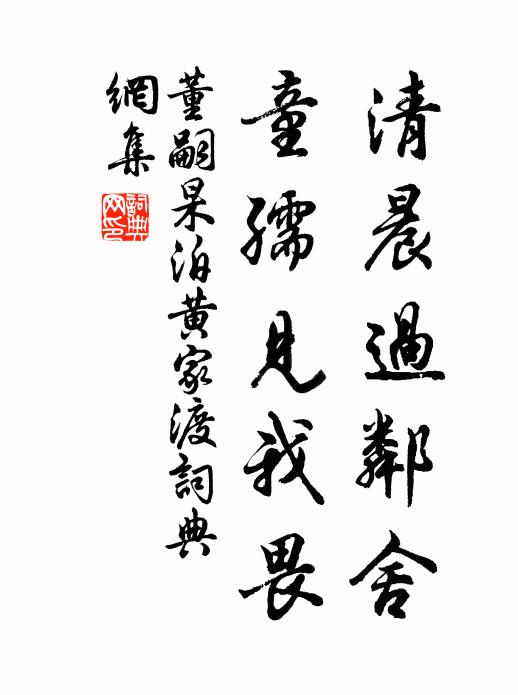 清晨過鄰舍
童孺見我畏
董嗣杲泊黃家渡詞典
網集
詞典
网印